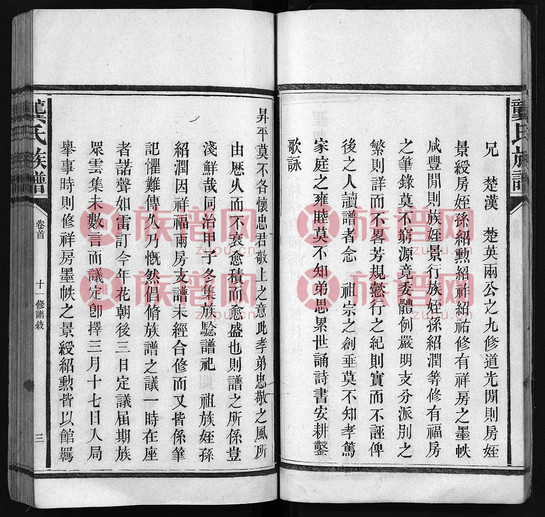 龔氏族譜
兄 楚漢 楚英兩公之九修道光閒則房姪
景綬房姪孫紹勲紹祥紹祐修有祥房之墨帙
咸豐閒則族姪景行族姪孫紹潤等修有福房
之筆錄莫不窮源竟委體例嚴明支分派別之
繁則詳而不畧芳規懿行之紀則實而不誣俾
後之人讀譜者念 祖宗之創垂莫不知孝篤
家庭之雍睦莫不知弟思累世誦詩書安耕鑿
歌詠
昇平莫不各懷忠君敬上之意此孝弟忠敬之風所
由歷久而不衰愈積而愈盛也則譜之所係豈
淺鮮哉同治甲子冬集族騐譜祀 祖族姪孫
紹潤因祥福兩房支譜未經合修而又皆係筆
記懼難傳久乃慨然倡脩族譜之議一時在座
者諾聲如雷訂今年花朝後三日定議屆期族
眾雲集未數言而議定卽擇三月十七日入局
舉事時則修祥房墨帙之景綬紹勲皆以館羈
龔氏族譜
卷首
十一修譜敘
三
族譜网
zupu.cn